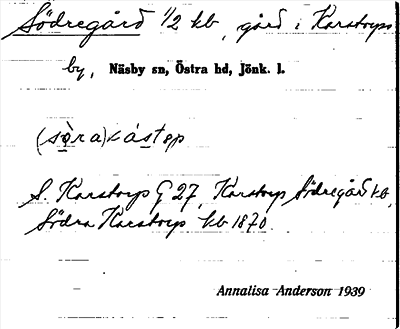 Södregård 1/2 kb, gård i Karstorps
by, Näsby sn, Östra hd, Jönk. l.
(sö̀ra)kástǝp
S. Karstorp G 27, Karstorp Södregård kb,
Södra Karstorp kb 1870.
Annalisa Anderson 1939